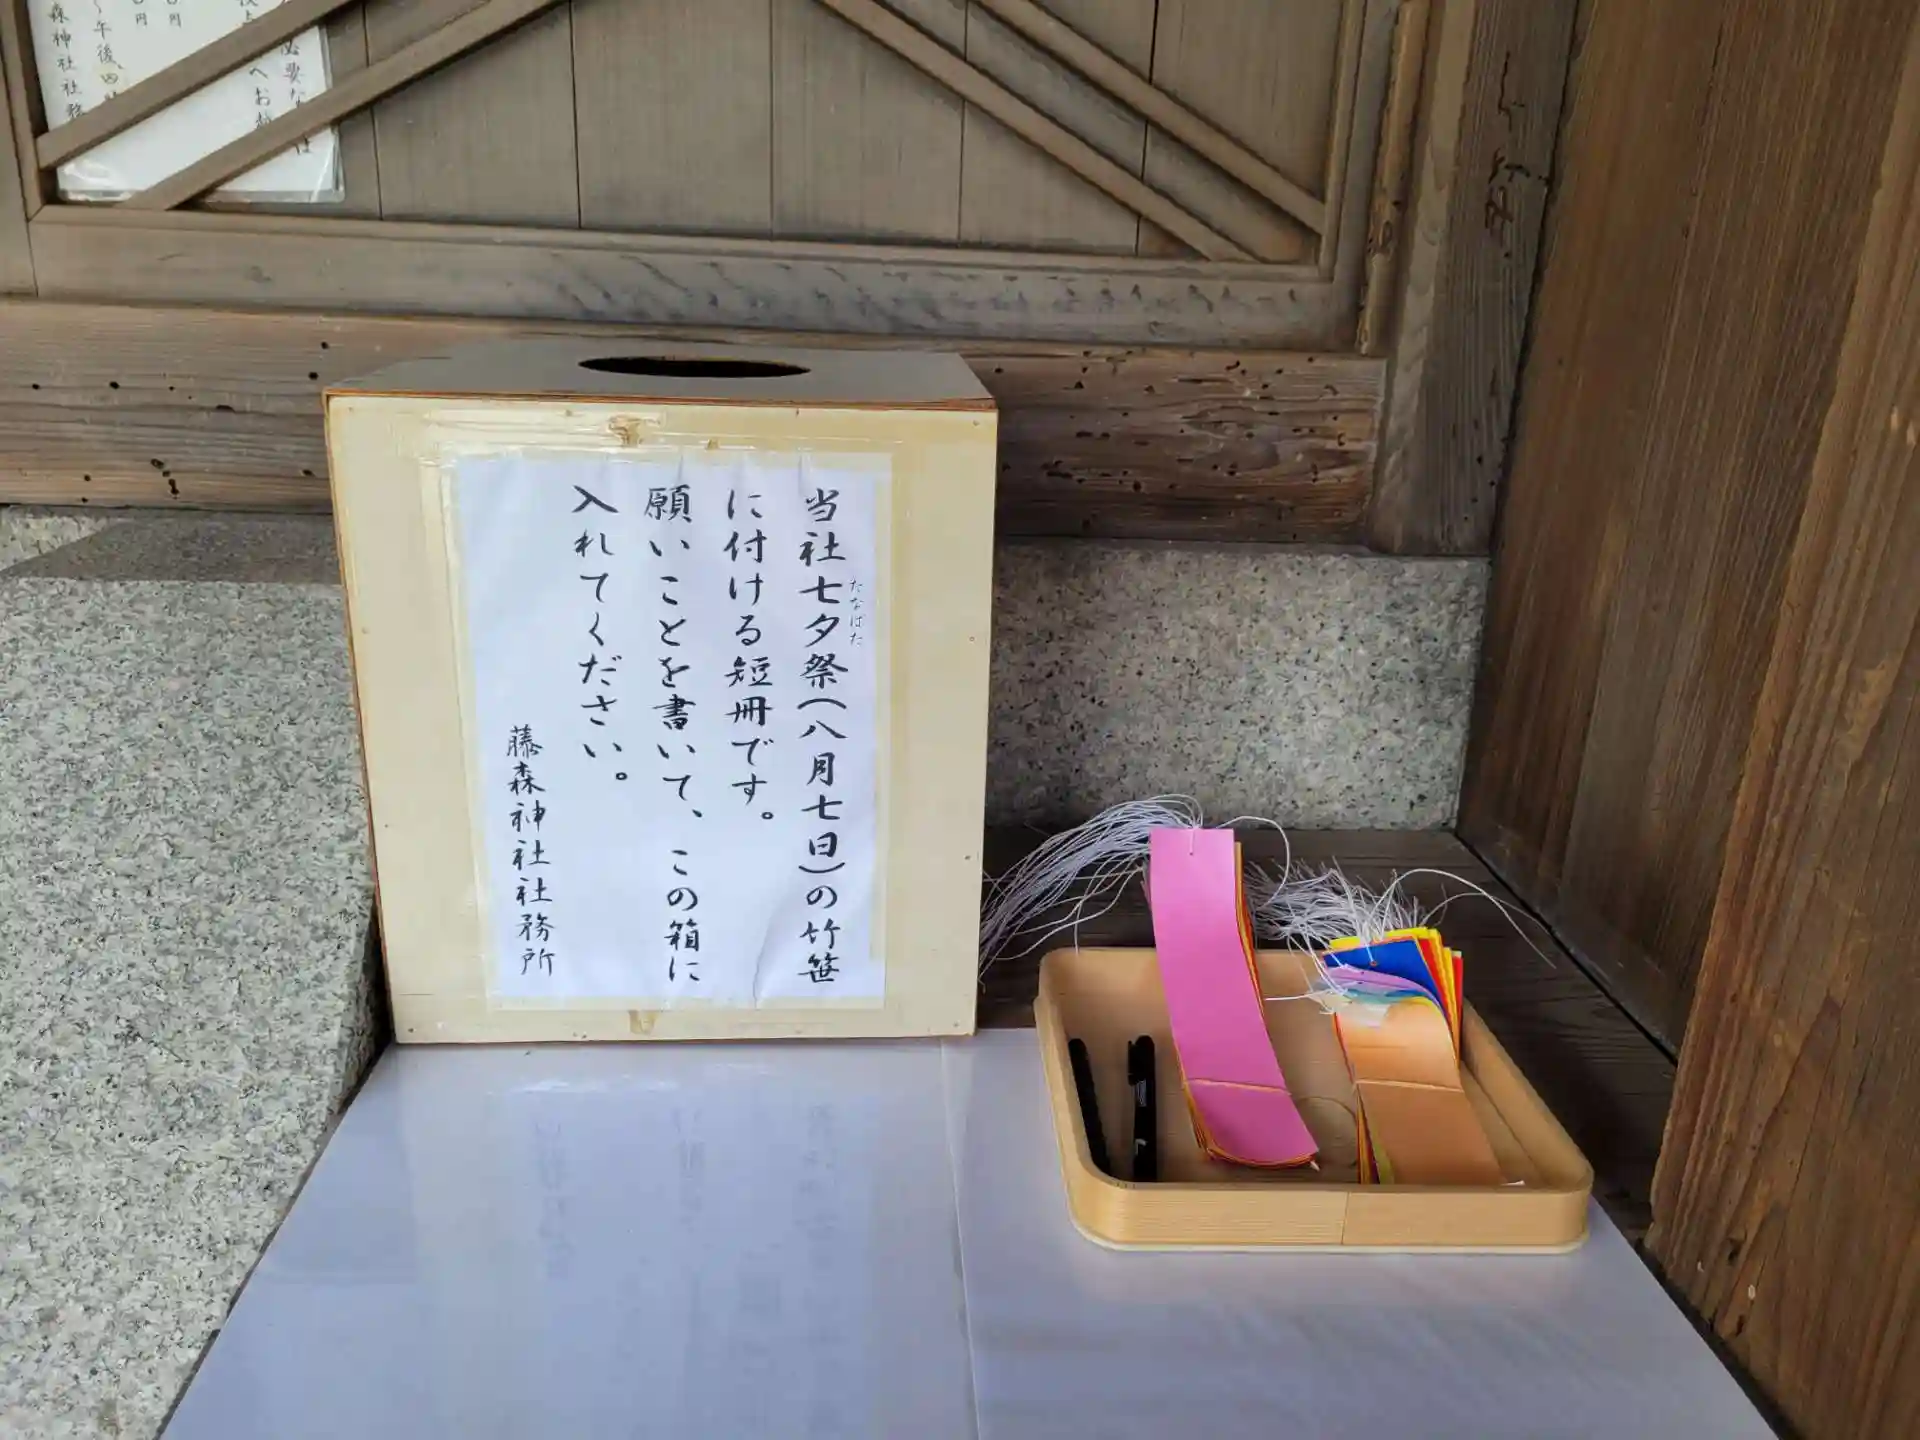 当社七夕祭(八月七日)の竹笹
たなばた
に付ける短冊です。
願いことを書いて、この箱に
入れてください。
藤森神社社務所
必要な
へお
円
円
〜午後四時
森神社社務